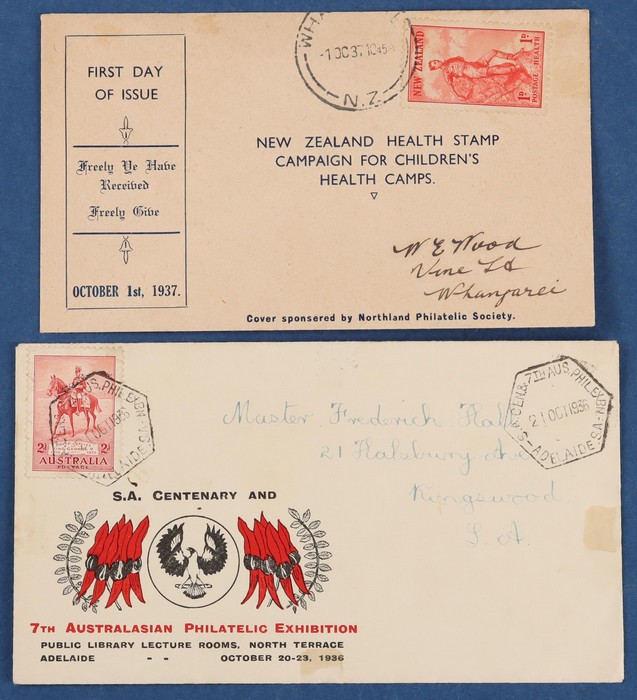 FIRST DAY
OF ISSUE
Freely Ye Have
Received
Freely Give
OCTOBER 1st, 1937.
1 OC 37 1045A
N.Z.
NEW ZEALAND
1D 1D
POSTAGE-HEALTH
NEW ZEALAND HEALTH STAMP
CAMPAIGN FOR CHILDREN'S
HEALTH CAMPS.
W E Wood
Vine St
Whangarei
Cover sponsered by Northland Philatelic Society.
2D 2D
AUSTRALIA
POSTAGE
AUS. PHIL. EXBN-SA
OCT 1936
ADELAIDE
CEN. & 7TH AUS. PHIL. EXBN-SA
21 OCT 1936
S-ADELAIDE-SA
Master Frederick
21
Kingswood
S. A.
S.A. CENTENARY AND
7TH AUSTRALASIAN PHILATELIC EXHIBITION
PUBLIC LIBRARY LECTURE ROOMS, NORTH TERRACE
ADELAIDE - - OCTOBER 20-23, 1936